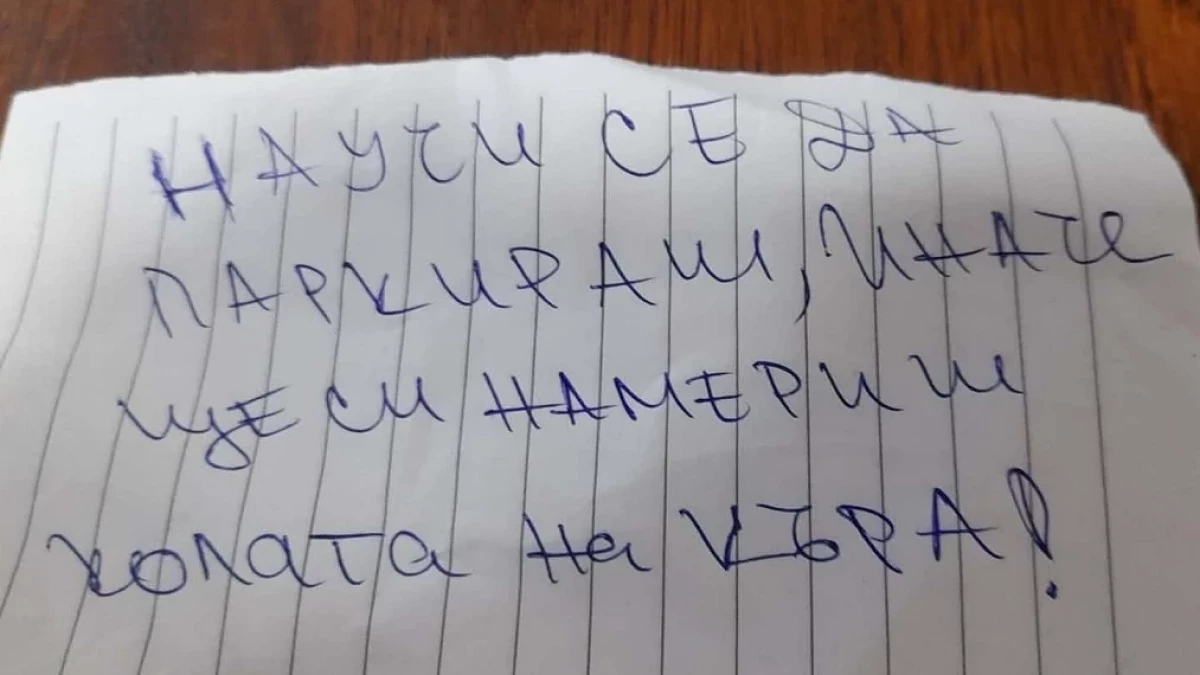 НАУЧИ СЕ ДА
ПАРКИРАШ, ИНАЧЕ
ЩЕ СИ НАМЕРИШ
КОЛАТА НА КЪРА!